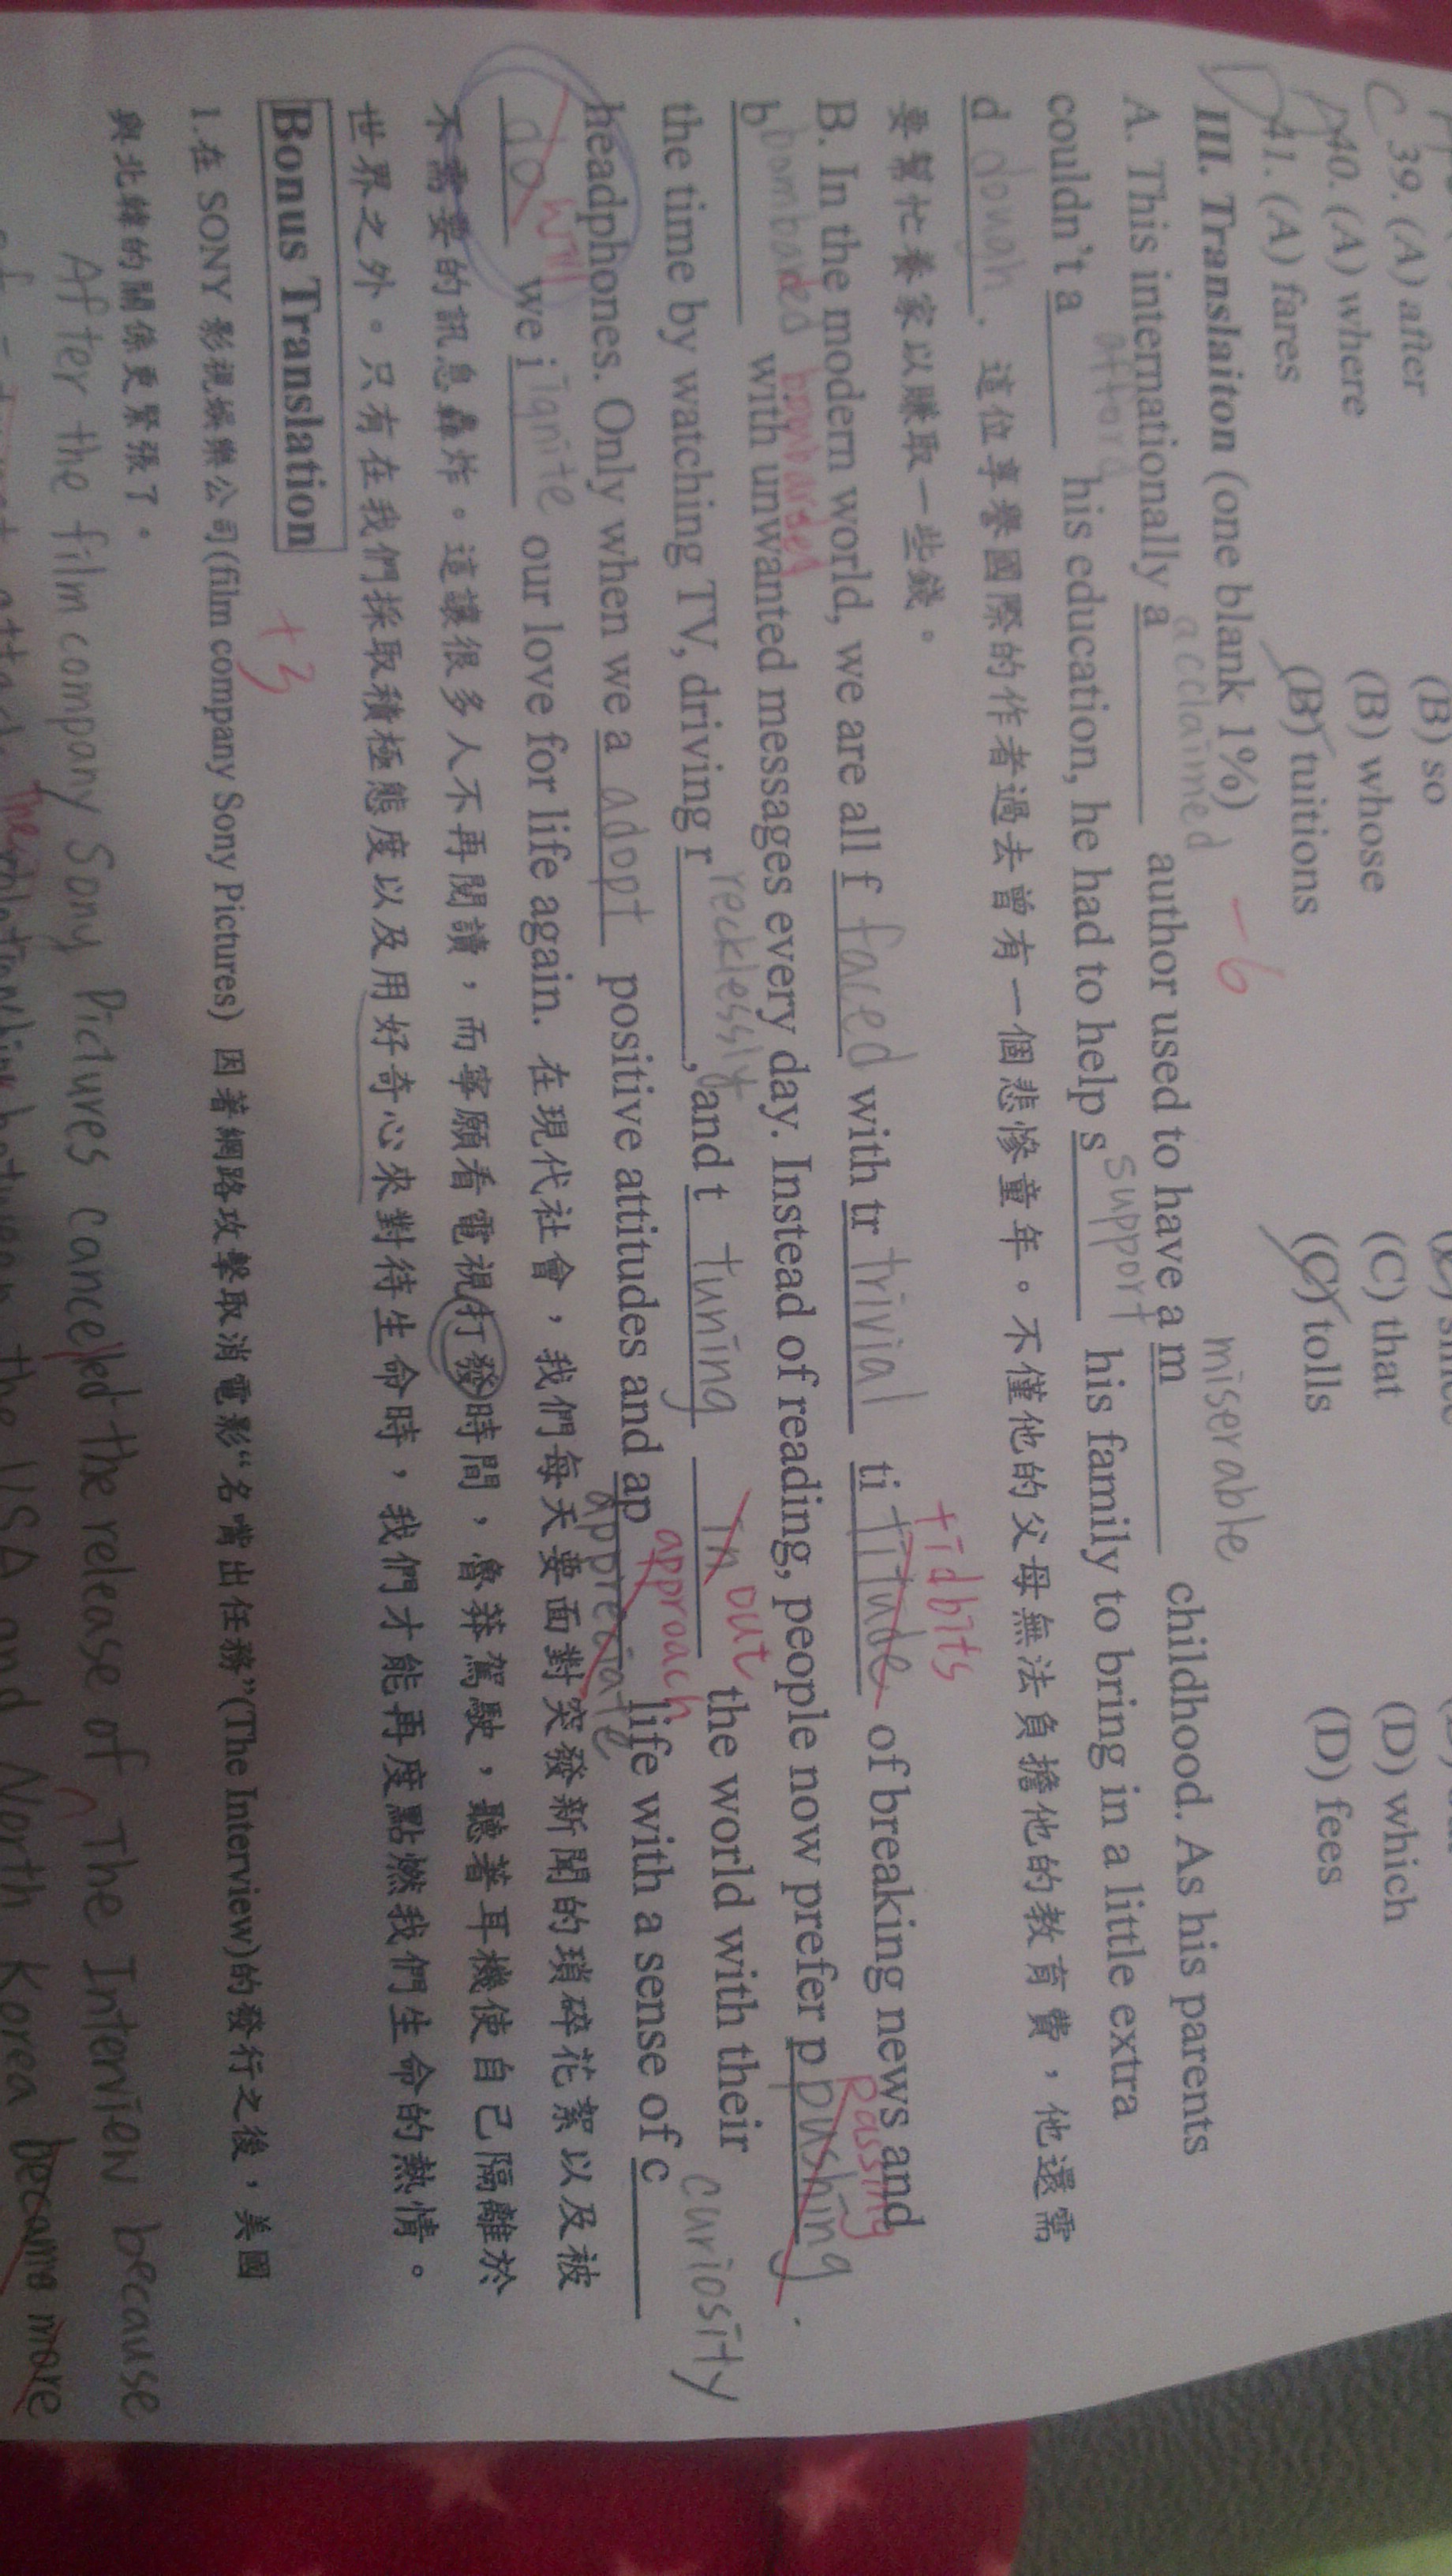 C 39. (A) after (B) so
40. (A) where (B) whose (C) that (D) which
D 41. (A) fares (B) tuitions (C) tolls (D) fees
III. Translaiton (one blank 1%) -6
A. This internationally a acclaimed author used to have a m miserable childhood. As his parents
couldn't a afford his education, he had to help s support his family to bring in a little extra
d dough. 這位享譽國際的作者過去曾有一個悲慘童年。不僅他的父母無法負擔他的教育費，他還需
要幫忙養家以賺取一些錢。
B. In the modern world, we are all f faced with tr trivial ti titude tidbits of breaking news and
b bombarded bombarded with unwanted messages every day. Instead of reading, people now prefer p pushing passing
the time by watching TV, driving r recklessly, and t tuning in out the world with their
headphones. Only when we a adopt positive attitudes and ap appreciate approach life with a sense of c curiosity
do will we i ignite our love for life again. 在現代社會，我們每天要面對突發新聞的瑣碎花絮以及被
不需要的訊息轟炸。這讓很多人不再閱讀，而寧願看電視打發時間，魯莽駕駛，聽著耳機使自己隔離於
世界之外。只有在我們採取積極態度以及用好奇心來對待生命時，我們才能再度點燃我們生命的熱情。
Bonus Translation +3
1.在 SONY 影視娛樂公司(film company Sony Pictures) 因著網路攻擊取消電影“名嘴出任務”(The Interview)的發行之後，美國
與北韓的關係更緊張了。
After the film company Sony Pictures cancelled the release of The Interview because
the relationship between the USA and North Korea became more